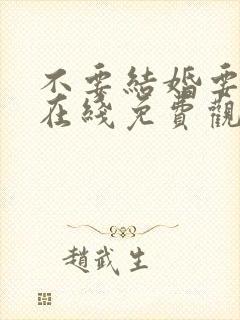 不要結婚要
在綫免費觀
趙武生